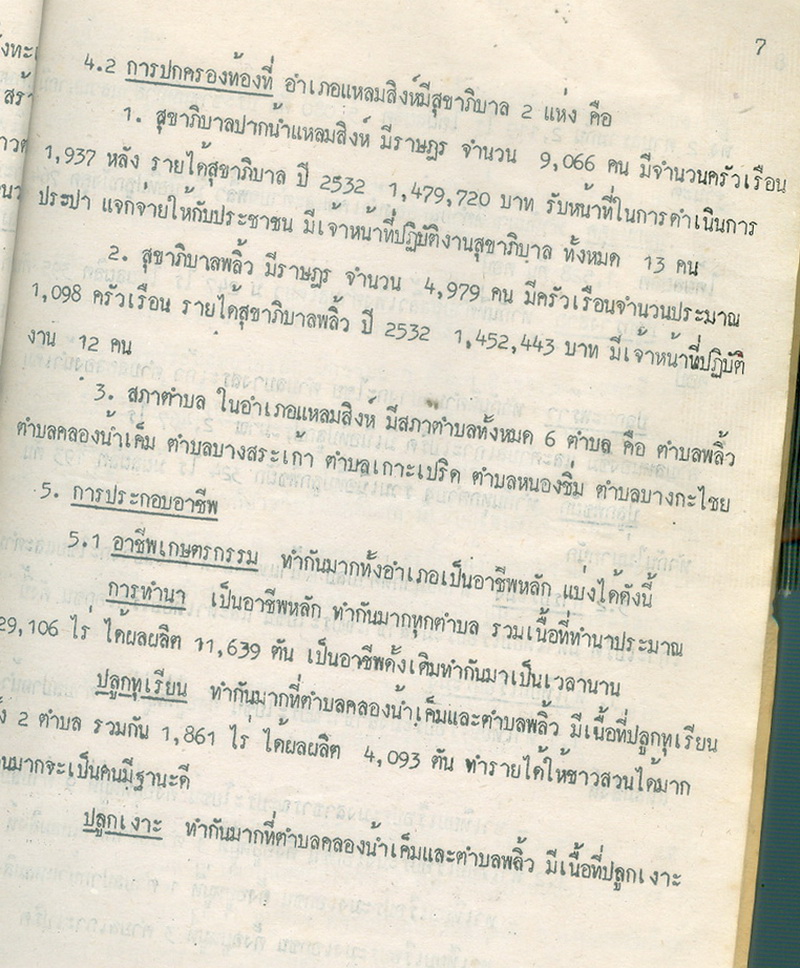 7
4.2 การปกครองท้องที่ อำเภอแหลมสิงห์มีสุขาภิบาล 2 แห่ง คือ
1. สุขาภิบาลปากน้ำแหลมสิงห์ มีราษฎร จำนวน 9,066 คน มีจำนวนครัวเรือน
1,937 หลัง รายได้สุขาภิบาล ปี 2532 1,479,720 บาท รับหน้าที่ในการดำเนินการ
ประปา แจกจ่ายให้กับประชาชน มีเจ้าหน้าที่ปฏิบัติงานสุขาภิบาล ทั้งหมด 13 คน
2. สุขาภิบาลพลิ้ว มีราษฎร จำนวน 4,979 คน มีครัวเรือนจำนวนประมาณ
1,098 ครัวเรือน รายได้สุขาภิบาลพลิ้ว ปี 2532 1,452,443 บาท มีเจ้าหน้าที่ปฏิบัติ
งาน 12 คน
3. สภาตำบล ในอำเภอแหลมสิงห์ มีสภาตำบลทั้งหมด 6 ตำบล คือ ตำบลพลิ้ว
ตำบลคลองน้ำเค็ม ตำบลบางสระเก้า ตำบลเกาะเปริด ตำบลหนองชิ่ม ตำบลบางกะไชย
5. การประกอบอาชีพ
5.1 อาชีพเกษตรกรรม ทำกันมากทั้งอำเภอเป็นอาชีพหลัก แบ่งได้ดังนี้
การทำนา เป็นอาชีพหลัก ทำกันมากทุกตำบล รวมเนื้อที่ทำนาประมาณ
29,106 ไร่ ได้ผลผลิต 11,639 ตัน เป็นอาชีพดั้งเดิมทำกันมาเป็นเวลานาน
ปลูกทุเรียน ทำกันมากที่ตำบลคลองน้ำเค็มและตำบลพลิ้ว มีเนื้อที่ปลูกทุเรียน
2 ตำบล รวมกัน 1,861 ไร่ ได้ผลผลิต 4,093 ตัน ทำรายได้ให้ชาวสวนได้มาก
จะเป็นคนมีฐานะดี
ปลูกเงาะ ทำกันมากที่ตำบลคลองน้ำเค็มและตำบลพลิ้ว มีเนื้อที่ปลูกเงาะ